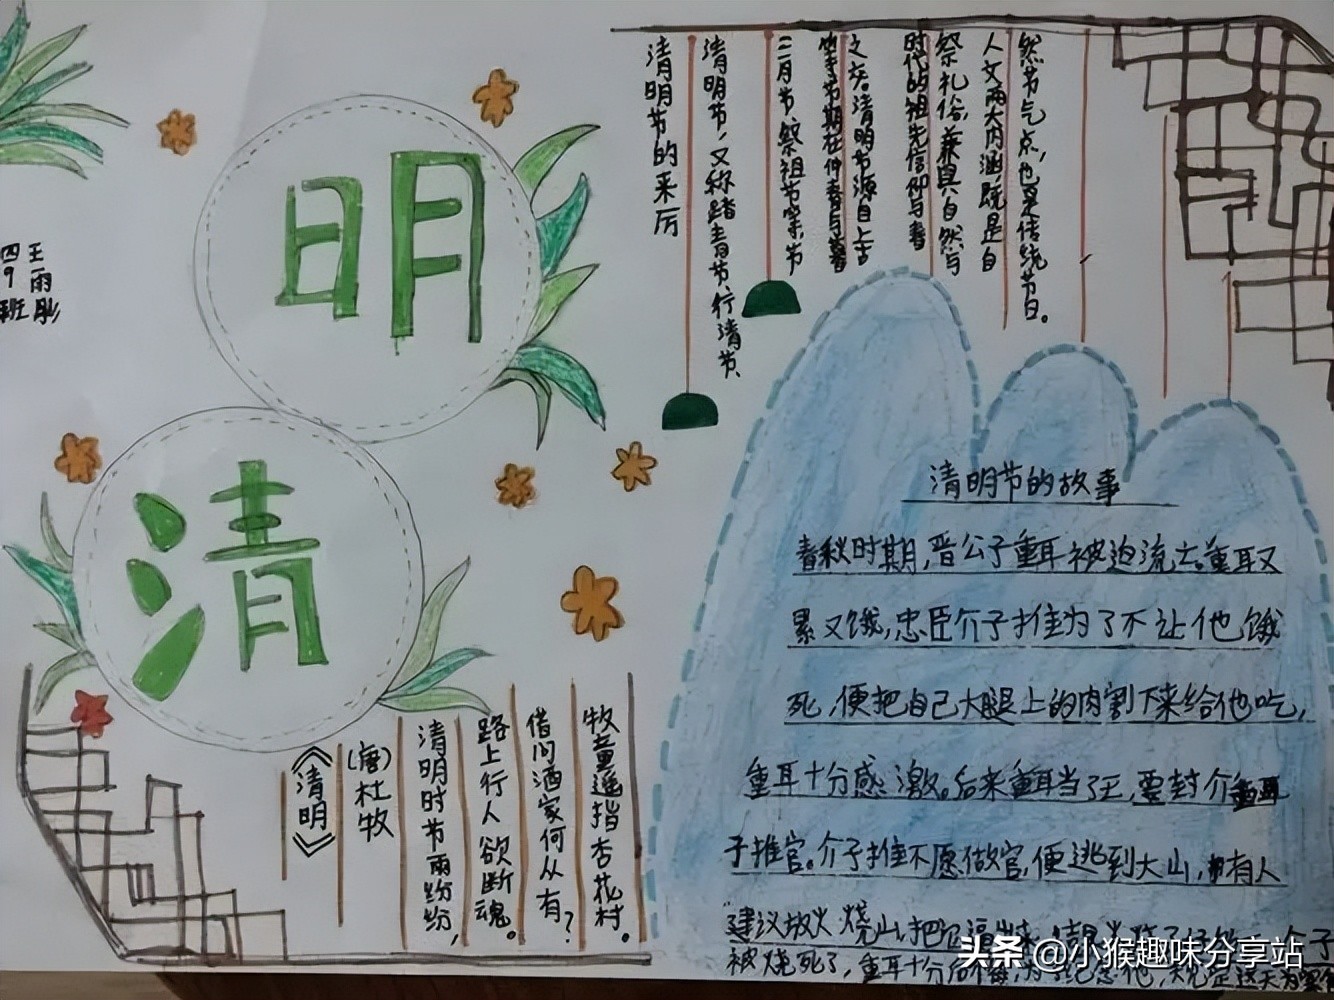 明
清
王雨彤
四9班
清明节的来历
清明节，又称踏青节、行清节、
三月节、祭祖节等，节
之交。清明节源自上古
时代的祖先信仰与春
祭礼俗，兼具自然与
人文两大内涵，既是自
然节气点，也是传统节日。
《清明》
(唐)杜牧
清明时节雨纷纷，
路上行人欲断魂。
借问酒家何从有？
牧童遥指杏花村。
清明节的故事
春秋时期，晋公子重耳被迫流亡。重耳又
累又饿，忠臣介子推为了不让他饿
死，便把自己大腿上的肉割下来给他吃，
重耳十分感激。后来重耳当了王，要封介
子推官。介子推不愿做官，便逃到大山，有人
建议放火烧山，把它逼出来，
被烧死了，重耳十分后悔，为了纪念他，规定这天为
头条 @小猴趣味分享站